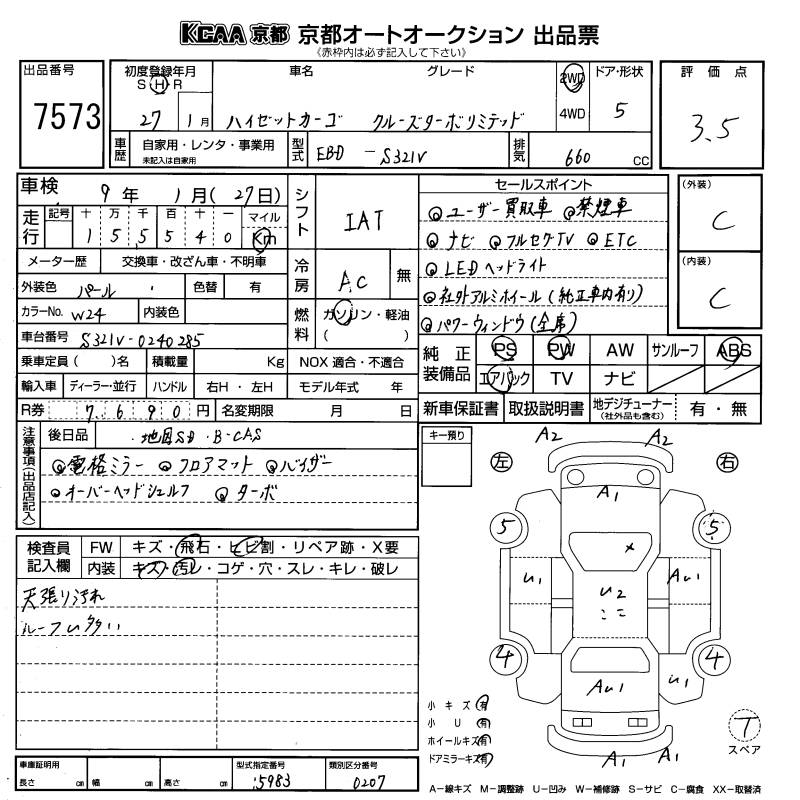 KCAA 京都 京都オートオークション 出品票
《赤枠内は必ず記入して下さい》
出品番号 7573
初度登録年月 S H R 27 1月
車名 ハイゼットカーゴ
グレード クルーズターボリミテッド
2WD 4WD
ドア・形状 5
評価点 3.5
車歴 自家用・レンタ・事業用 未記入は自家用
型式 EBD - S321V
排気 660 CC
車検 9年 1月(27日)
走行 記号 十 万 千 百 十 一 マイル
1 5 5 5 4 0 Km
シフト IAT
メーター歴 交換車・改ざん車・不明車
冷房 AC 無
外装色 パール 色替 有
カラーNo. W24 内装色
燃料 ガソリン・軽油 ( )
車台番号 S321V-0240285
乗車定員( )名 積載量 Kg NOX 適合・不適合
輸入車 ディーラー・並行 ハンドル 右H・左H モデル年式 年
R券 7690円 名変期限 月 日
セールスポイント
◎ユーザー買取車 ◎禁煙車
◎ナビ ◎フルセグTV ◎ETC
◎LEDヘッドライト
◎社外アルミホイール(純正車内有り)
◎パワーウィンドウ(全席)
(外装) C
(内装) C
純正装備品 PS PW AW サンルーフ ABS
エアバック TV ナビ
新車保証書 取扱説明書 地デジチューナー (社外品も含む) 有・無
注意事項(出品店記入)
後日品 地図SD・B-CAS
◎電格ミラー ◎フロアマット ◎バイザー
◎オーバーヘッドシェルフ ◎ターボ
キー預り
検査員記入欄 FW キズ・飛石・ヒビ割・リペア跡・X要
内装 キズ・汚レ・コゲ・穴・スレ・キレ・破レ
天張り汚れ
ルーフU多い
A2 A2
左 右
A1
5 5
X
U1 U2 AU1
4 4
AU1 U1
小キズ 有
小U 有
ホイールキズ 有
ドアミラーキズ 有
A1 A1
T スペア
車庫証明用 長さ cm 幅 cm 高さ cm
型式指定番号 15983
類別区分番号 0207
A−線キズ M−調整跡 U−凹み W−補修跡 S−サビ C−腐食 XX−取替済